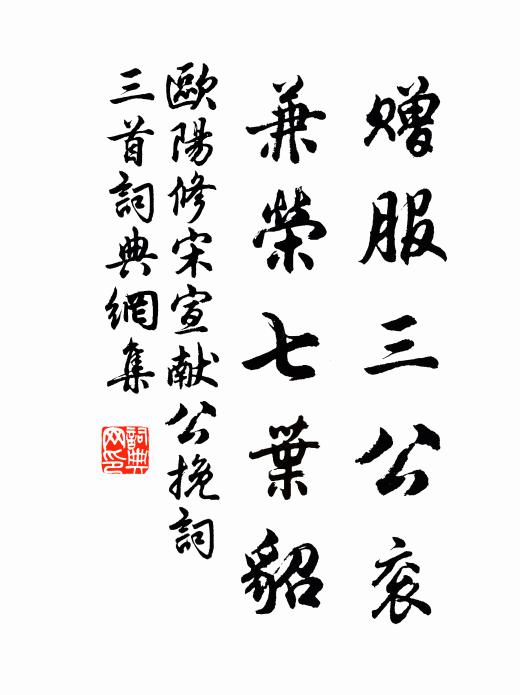 贈服三公衮
兼榮七葉貂
歐陽修宋宣献公挽詞
三首詞典網集
詞典網印